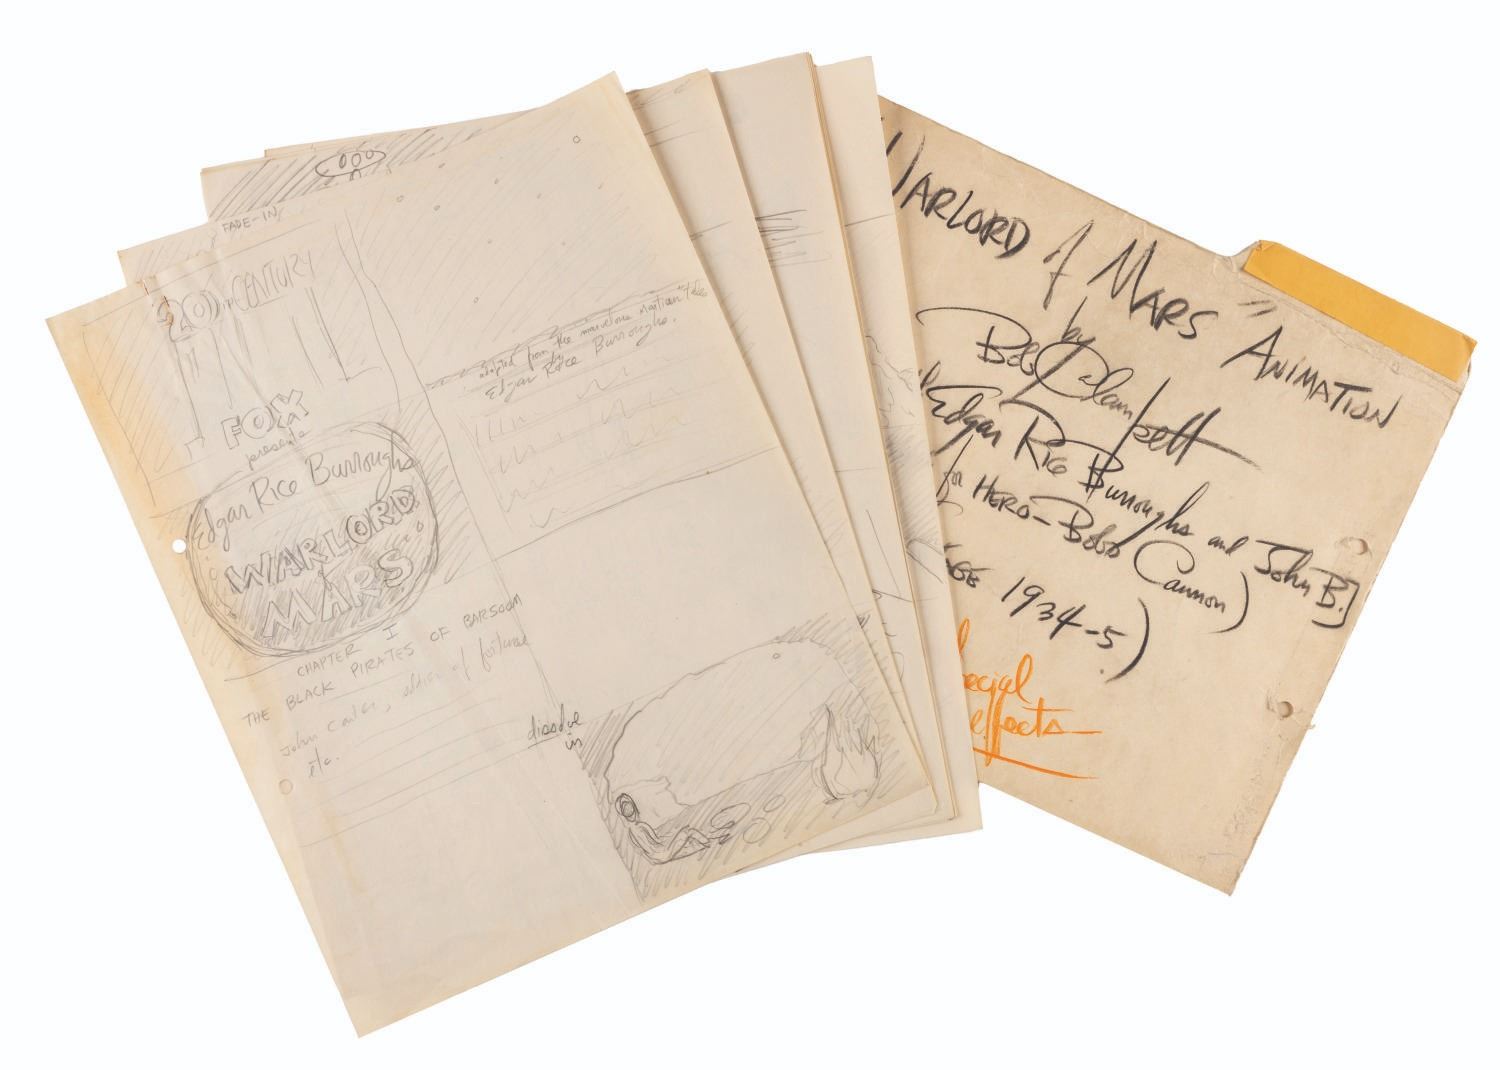 FADE-IN
20TH CENTURY
FOX
presents
Edgar Rice Burroughs
WARLORD
MARS
CHAPTER I
THE BLACK PIRATES OF BARSOOM
John Carter, soldier of fortune
etc.
adapted from the marvelous martian tales
by
Edgar Rice Burroughs.
dissolve
in
"WARLORD of MARS" ANIMATION
by
Bob Clampett
Edgar Rice Burroughs and John B.]
for HERO-Bobo Cannon)
1934-5)
effects